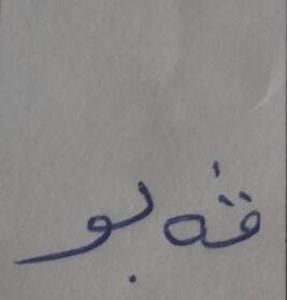 ڤە بو